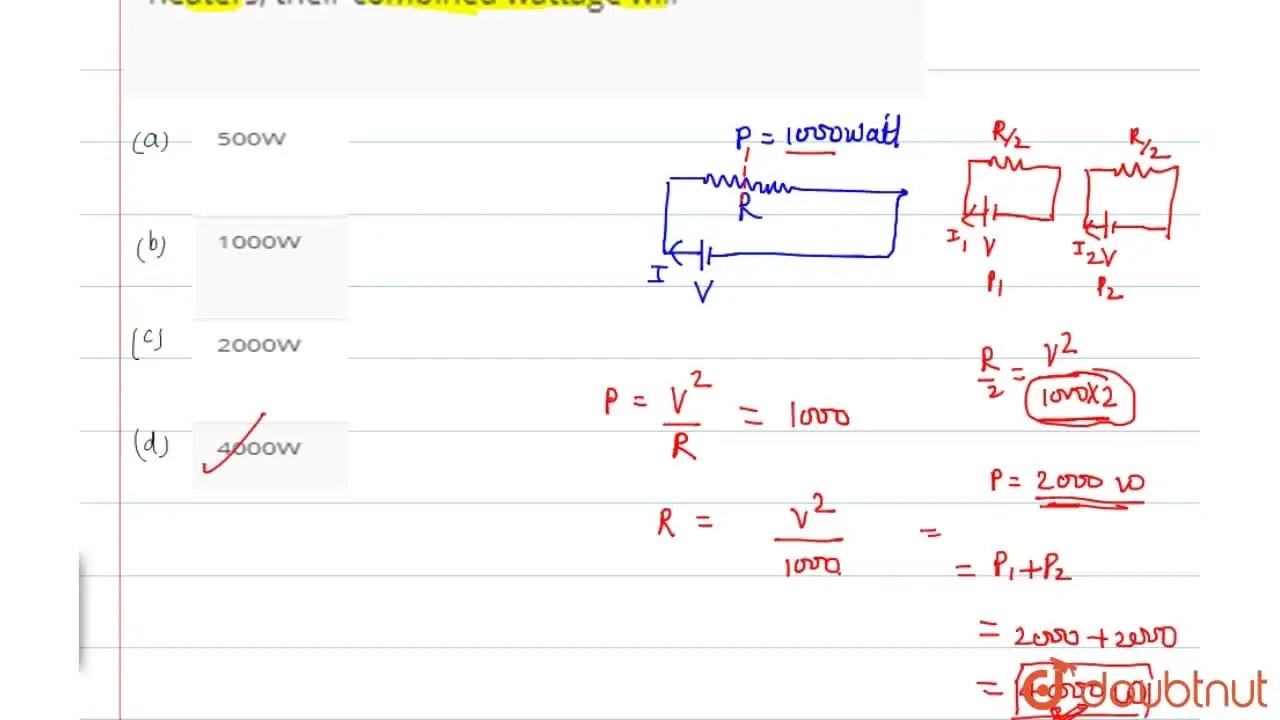 heaters, their combined wattage will
(a) 500W
(b) 1000W
(c) 2000W
(d) 4000W
P = 1000 watt
R
I
V
R/2
I1 V
P1
R/2
I2 V
P2
P = V²/R = 1000
R = V²/1000 =
R/2 = V²/1000×2
P = 2000 W
= P1 + P2
= 2000 + 2000
= 4000 W
doubtnut